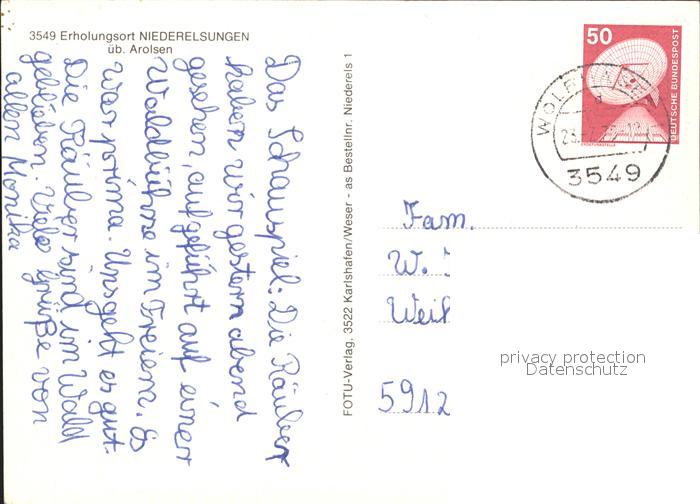 3549 Erholungsort NIEDERELSUNGEN
üb. Arolsen
Das Schauspiel: Die Räuber
haben wir gestern abend
gesehen, aufgeführt auf einer
Waldbühne im Freien. Es
war prima. Uns geht es gut.
Die Räuber sind im Wald
geblieben. Viele Grüße von
allen Monika
FOTU-Verlag, 3522 Karlshafen/Weser - as Bestellnr. Niederels 1
50
DEUTSCHE BUNDESPOST
3549
Fam.
W.
Weil
5912
privacy protection
Datenschutz